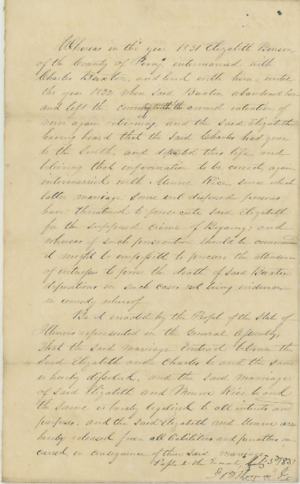 Whereas in the year 1831 Elizabeth
of the County of Perry intermarried with
Charles Baxter, and lived with him, until
the year 1832 when said Baxter abandoned her
and left the country with the avowed intention of
never again returning, and the said Elizabeth
having heard that the said Charles had gone
to the South, and departed this life, and
believing that information to be correct, again
intermarried with Rice since which
latter marriage some evil disposed persons
have threatened to prosecute said Elizabeth
for the supposed crime of Bigamy; and
whereas if such prosecution should be commenced
it might be impossible to procure the attendance
of witnesses to prove the death of said Baxter
depositions in such cases not being evidence
in remedy whereof
Be it enacted by the People of the State of
Illinois represented in the General Assembly,
That the said marriage contract between the
said Elizabeth and Charles be and the same
is hereby dissolved, and the said marriage
of said Elizabeth and Rice be and
the same is hereby legalized to all intents and
purposes, and the said Elizabeth and are
hereby released from all liabilities and penalties in
curred in consequence of their said marriage